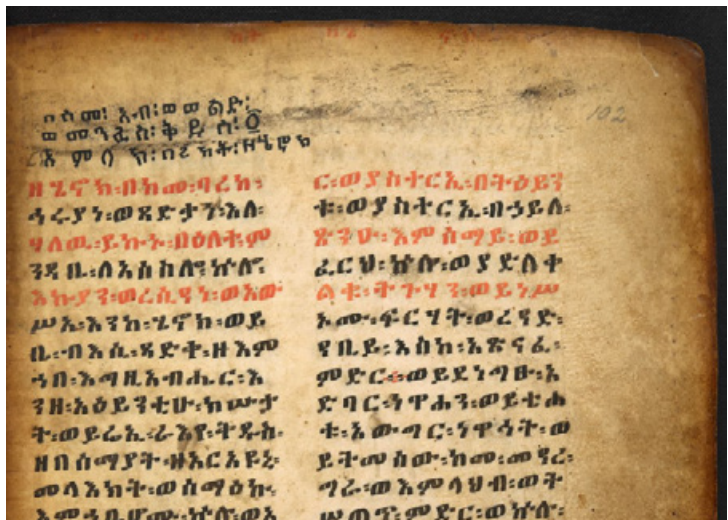 በስመ፡ አብ፡ ወወልድ፡
ወመንፈስ፡ ቅዱስ፡ ፩
102
ዘሄኖክ፡ በከመ፡ ባረከ፡
ኅሩያነ፡ ወጻድቃነ፡ እለ፡
ሃለዉ፡ ይኩኑ፡ በዕለት፡ ም
ንዳቤ፡ ለአሰስሎ፡ ኵሎ፡
እኩያን፡ ወረሲዓን፡ ወአው
ሥአ፡ እንከ፡ ሄኖክ፡ ወይ
ቤ፡ ብእሲ፡ ጻድቅ፡ ዘእም
ኀበ፡ እግዚአብሔር፡ እ
ንዘ፡ አዕይንቲሁ፡ ክሡታ
ት፡ ወይሬኢ፡ ራእየ፡ ቅዱስ፡
ዘበሰማያት፡ ዘአርአዩኒ፡
መላእክት፡ ወሰማዕኩ፡
እምኀቤሆሙ፡ ኵሎ፡ ወአ
ር፡ ወያስተርኢ፡ በትዕይን
ቱ፡ ወያስተርኢ፡ በኃይለ፡
ጽንዑ፡ እምሰማይ፡ ወይ
ፈርህ፡ ኵሉ፡ ወያድለቀ
ልቁ፡ ትጉሃን፡ ወይነሥ
ኦሙ፡ ፍርሃት፡ ወረዓድ፡
ዓቢይ፡ እስከ፡ አጽናፈ፡
ምድር፡ ወይደነግፁ፡ አ
ድባር፡ ነዋኀን፡ ወይቴሐ
ቱ፡ አውግር፡ ነዋኃት፡ ወ
ይትመሰው፡ ከመ፡ መዓረ፡
ግራ፡ ወእምላህብ፡ ወት
ሠጠም፡ ምድር፡ ወኵሉ፡